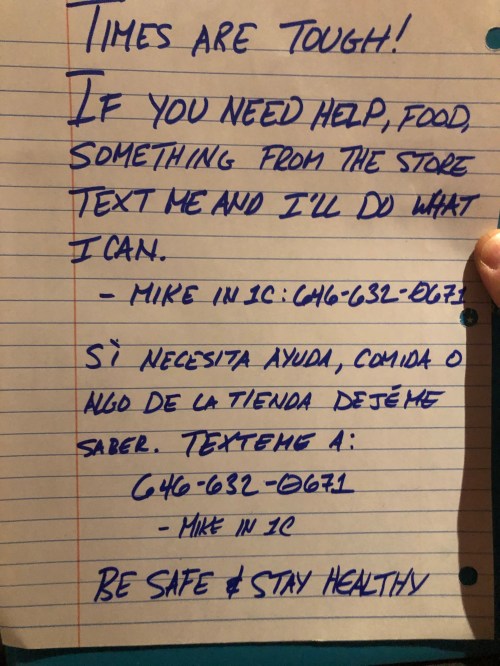 TIMES ARE TOUGH!
IF YOU NEED HELP, FOOD,
SOMETHING FROM THE STORE
TEXT ME AND I'LL DO WHAT
I CAN.
- MIKE IN 1C: 646-632-0671
SÌ NECESITA AYUDA, COMIDA O
ALGO DE LA TIENDA DEJÉME
SABER. TEXTEME A:
646-632-0671
- MIKE IN 1C
BE SAFE & STAY HEALTHY